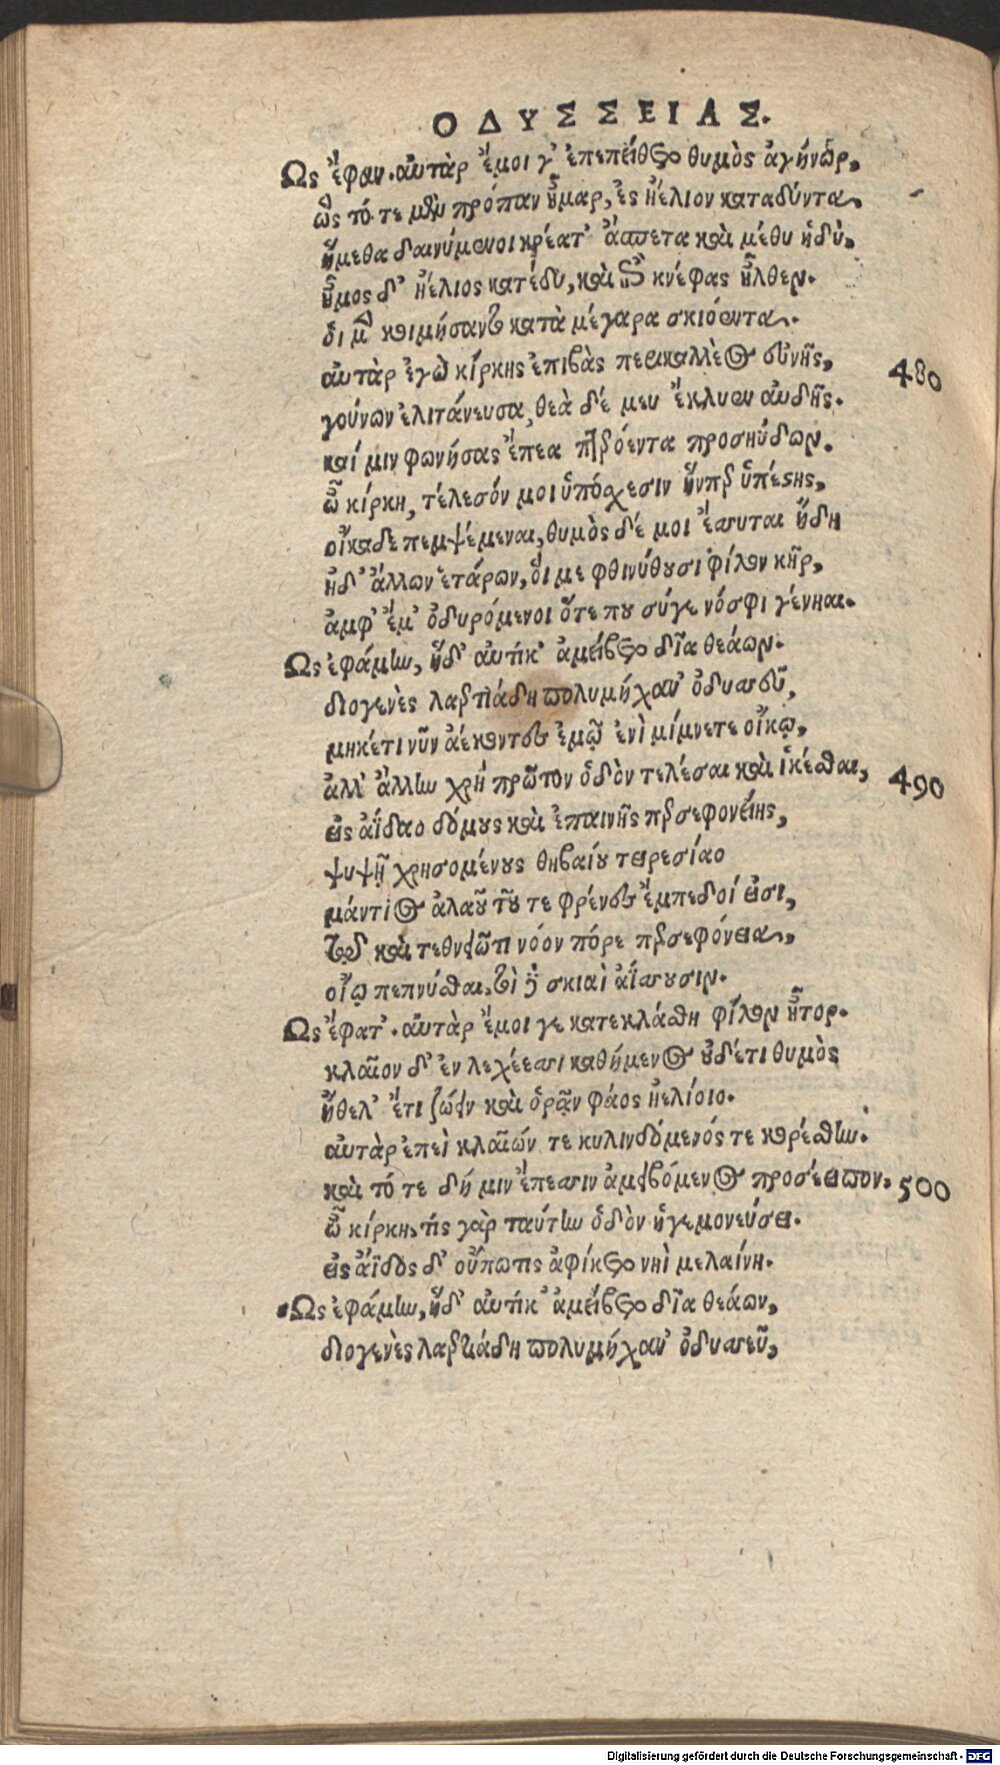 ΟΔΥΣΣΕΙΑΣ.
Ως ἔφαν. αὐτὰρ ἔμοι γ' ἐπεπείθετο θυμὸς ἀγήνωρ,
ὣς τό τε μὲν πρόπαν ἦμαρ, ἐς ἠέλιον καταδύντα,
ἥμεθα δαινύμενοι κρέατ' ἄσπετα καὶ μέθυ ἡδύ.
ἦμος δ' ἠέλιος κατέδυ, καὶ ἐπὶ κνέφας ἦλθεν.
δι μὲν κοιμήσαντο κατὰ μέγαρα σκιόεντα.
αὐτὰρ ἐγὼ κίρκης ἐπιβὰς περικαλλέος εὐνῆς, 480
γούνων ἐλιτάνευσα, θεὰ δέ μευ ἔκλυεν αὐδῆς.
καί μιν φωνήσας ἔπεα πτερόεντα προσηύδων.
ὦ κίρκη, τέλεσόν μοι ὑπόσχεσιν ἥνπερ ὑπέστης,
οἴκαδε πεμψέμεναι, θυμὸς δέ μοι ἔσσυται ἤδη
ἠδ' ἄλλων ἑτάρων, ὅι με φθινύθουσι φίλον κῆρ,
ἀμφ' ἔμ' ὀδυρόμενοι ὅτε που σύγε νόσφι γένηαι.
Ως ἐφάμην, ἥδ' αὐτίκ' ἀμείβετο δῖα θεάων.
διογενὲς λαερτιάδη πολυμήχαν' ὀδυσσεῦ,
μηκέτι νῦν ἀέκοντες ἐμῷ ἐνὶ μίμνετε οἴκῳ,
ἀλλ' ἄλλην χρὴ πρῶτον ὁδὸν τελέσαι καὶ ἱκέσθαι, 490
εἰς ἀΐδαο δόμους καὶ ἐπαινῆς περσεφονείης,
ψυψῇ χρησομένους θηβαίου τειρεσίαο
μάντιος ἀλαοῦ τοῦ τε φρένες ἔμπεδοί εἰσι,
τῷ καὶ τεθνειῶτι νόον πόρε περσεφόνεια,
οἴῳ πεπνύσθαι, τοὶ δὲ σκιαὶ ἀΐσσουσιν.
Ως ἔφατ'. αὐτὰρ ἔμοι γε κατεκλάσθη φίλον ἦτορ.
κλαῖον δ' ἐν λεχέεσσι καθήμενος οὐδέτι θυμὸς
ἤθελ' ἔτι ζώειν καὶ ὁρᾶν φάος ἠελίοιο.
αὐτὰρ ἐπεὶ κλαίων τε κυλινδόμενός τε κορέσθην.
καὶ τό τε δή μιν ἔπεσσιν ἀμειβόμενος προσέειπον. 500
ὦ κίρκη, τίς γὰρ ταύτην ὁδὸν ἡγεμονεύσει.
εἰς ἄϊδος δ' οὔπωτις ἀφίκετο νηὶ μελαίνῃ.
Ως ἐφάμην, ἥδ' αὐτίκ' ἀμείβετο δῖα θεάων,
διογενὲς λαερτιάδη πολυμήχαν' ὀδυσσεῦ,
Digitalisierung gefördert durch die Deutsche Forschungsgemeinschaft - DFG